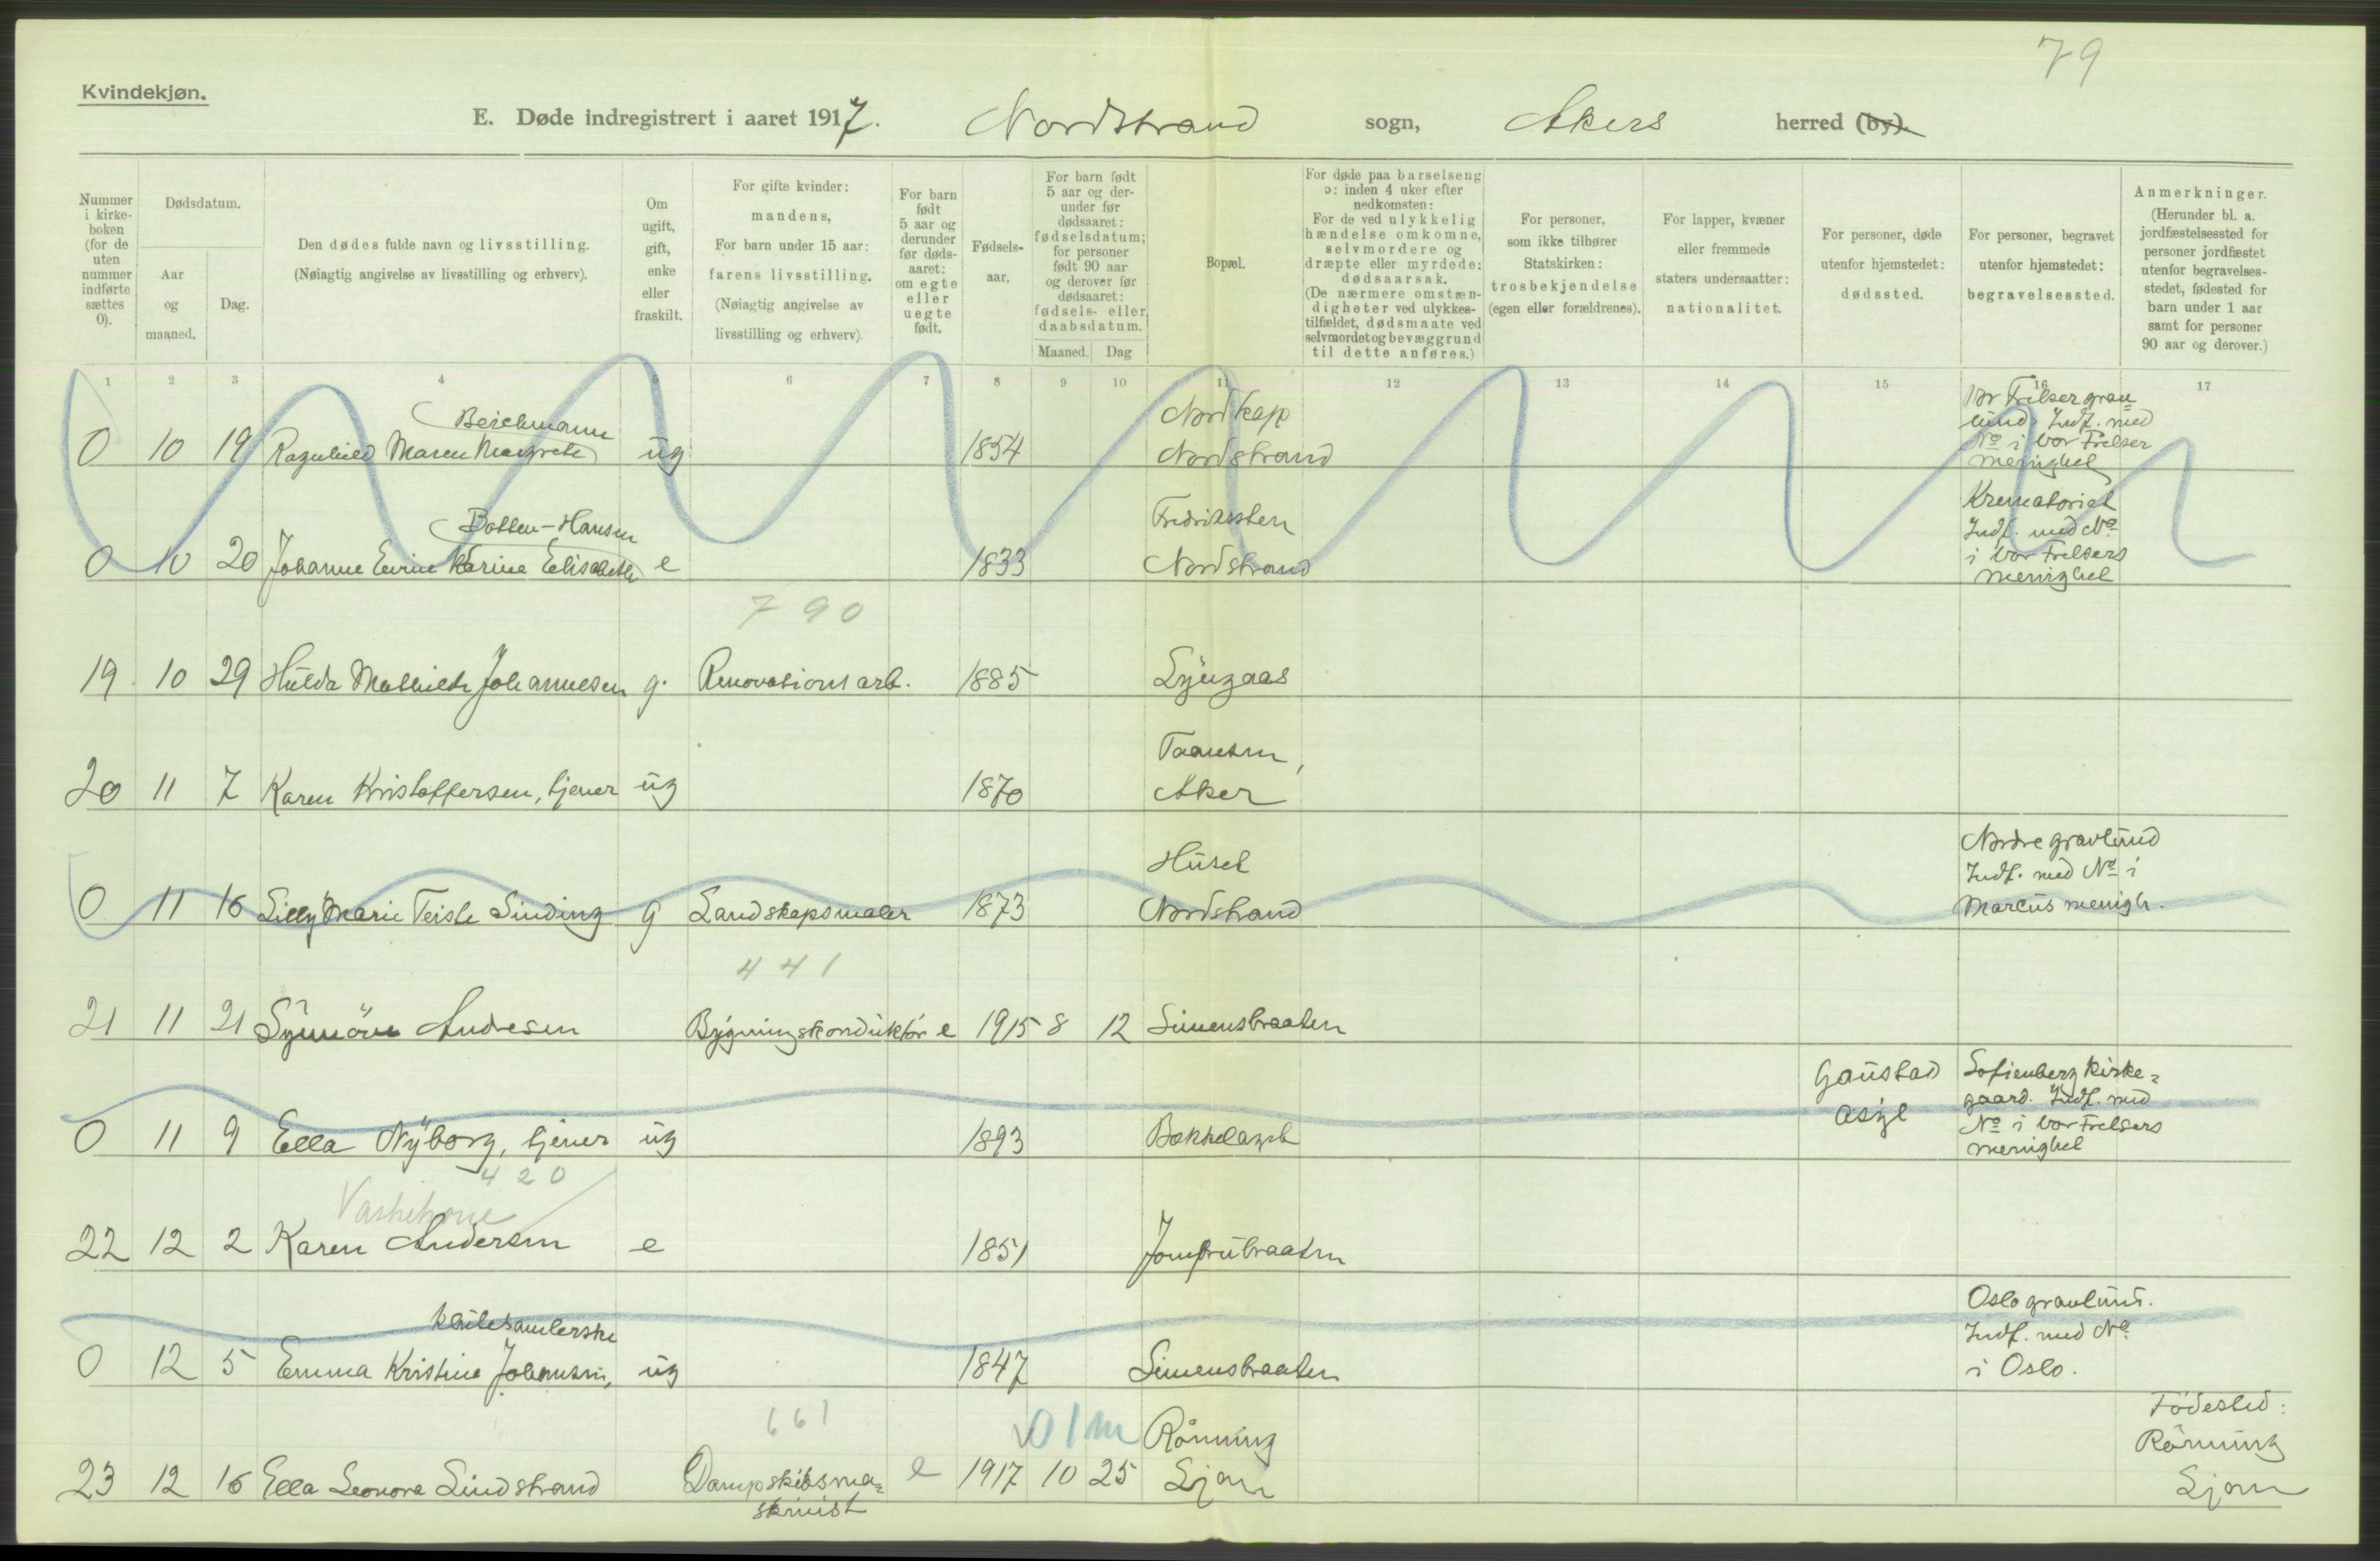 79
Kvindekjøn.
E. Døde indregistrert i aaret 1917. Nordstrand sogn, Akers herred (by).
Nummer i kirkeboken (for de uten nummer indførte sættes 0).
Dødsdatum.
Aar og maaned.
Dag.
Den dødes fulde navn og livsstilling.
(Nøiagtig angivelse av livsstilling og erhverv).
Om ugift, gift, enke eller fraskilt.
For gifte kvinder: mandens,
For barn under 15 aar: farens livsstilling.
(Nøiagtig angivelse av livsstilling og erhverv).
For barn født 5 aar og derunder før dødsaaret: om egte eller uegte født.
Fødselsaar.
For barn født 5 aar og derunder før dødsaaret: fødselsdatum; for personer født 90 aar og derover før dødsaaret: fødsels- eller daabsdatum.
Maaned. Dag
Bopæl.
For døde paa barselseng ɔ: inden 4 uker efter nedkomsten:
For de ved ulykkelig hændelse omkomne, selvmordere og dræpte eller myrdede: dødsaarsak.
(De nærmere omstændigheter ved ulykkestilfældet, dødsmaate ved selvmordet og bevæggrund til dette anføres.)
For personer, som ikke tilhører Statskirken: trosbekjendelse (egen eller forældrenes).
For lapper, kvæner eller fremmede staters undersaatter: nationalitet.
For personer, døde utenfor hjemstedet: dødssted.
For personer, begravet utenfor hjemstedet: begravelsessted.
Anmerkninger.
(Herunder bl. a. jordfæstelsessted for personer jordfæstet utenfor begravelsesstedet, fødested for barn under 1 aar samt for personer 90 aar og derover.)
1 2 3 4 5 6 7 8 9 10 11 12 13 14 15 16 17
Beichmann Nordkap Vor Frelser grav
lund. Indf. med
0 10 19 Ragnhild Maren Margrete ug 1854 Nordstrand No i Vor Frelser
menighet
Botten-Hansen Fredriksten Krematoriet
Indf. med No
0 10 20 Johanne Karine Elisabeth e 1833 Nordstrand i Vor Frelsers
menighet
790
19 10 29 Hulda Mathilde Johannesen g. Renovationsarb. 1885 Lyngaas
20 11 7 Karen Kristoffersen, tjener ug 1870 Aker
Huset Nordre gravlund
Indf. med No i
0 11 16 Lilly Marie Teiste Sinding g Landskapsmaler 1873 Nordstrand Marcus menigh.
441
21 11 21 Synnöve Andresen Bygningskonduktör e 1915 8 12 Simensbraaten
Gaustad Sofienberg kirke=
asyl gaard. Indf. med
0 11 9 Ella Nyborg, tjener ug 1893 Bækkelaget No i Vor Frelsers
menighet
420
Vaskekone
22 12 2 Karen Andersen e 1851 Jomfrubraaten
Oslo gravlund.
Indf. med No
0 12 5 Emma Kristine Johansen, ug 1847 Simensbraaten i Oslo.
661 01m Rönning Födested:
Rönning
23 12 16 Ella Leonora Lindstrand Dampskibsma= e 1917 10 25 Ljan Ljan
skinist